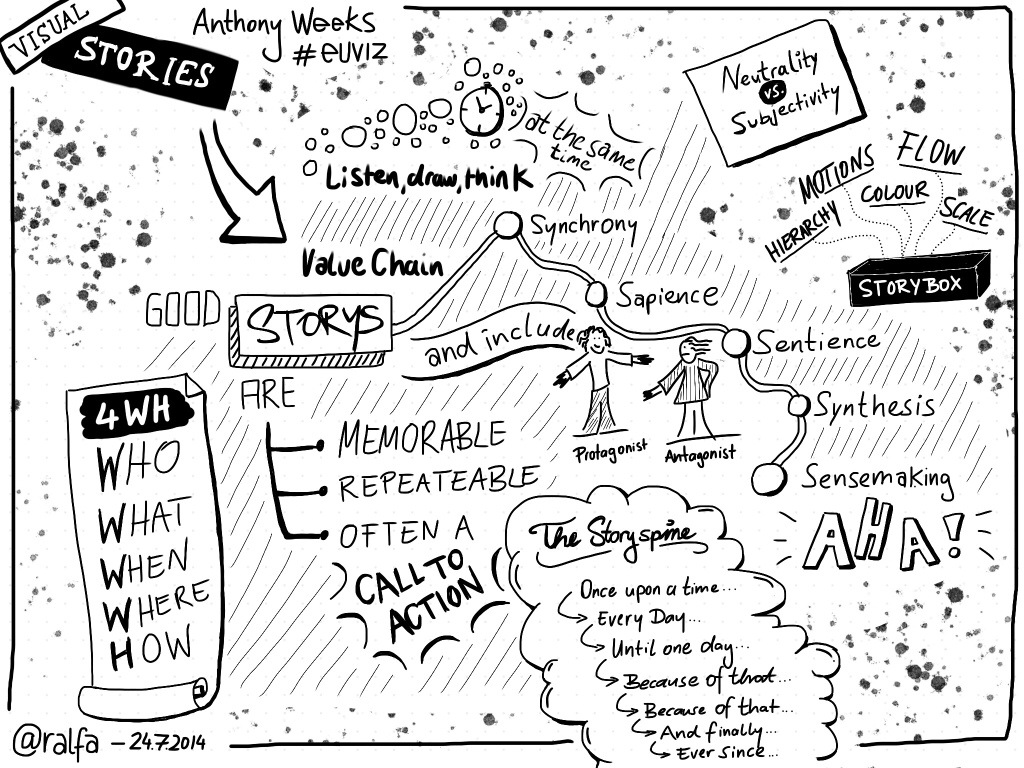 VISUAL
STORIES
Anthony Weeks
#euviz
at the same
time
Listen, draw, think
Neutrality
vs.
Subjectivity
HIERARCHY
MOTIONS
COLOUR
FLOW
SCALE
STORYBOX
Value Chain
Synchrony
Sapience
Sentience
Synthesis
Sensemaking
AHA!
GOOD
STORYS
and include
Protagonist
Antagonist
ARE
MEMORABLE
REPEATEABLE
OFTEN A
CALL TO
ACTION
4WH
WHO
WHAT
WHEN
WHERE
HOW
The Storyspine
Once upon a time...
Every Day...
Until one day...
Because of that...
Because of that...
And finally...
Ever since...
@ralfa - 24.7.2014